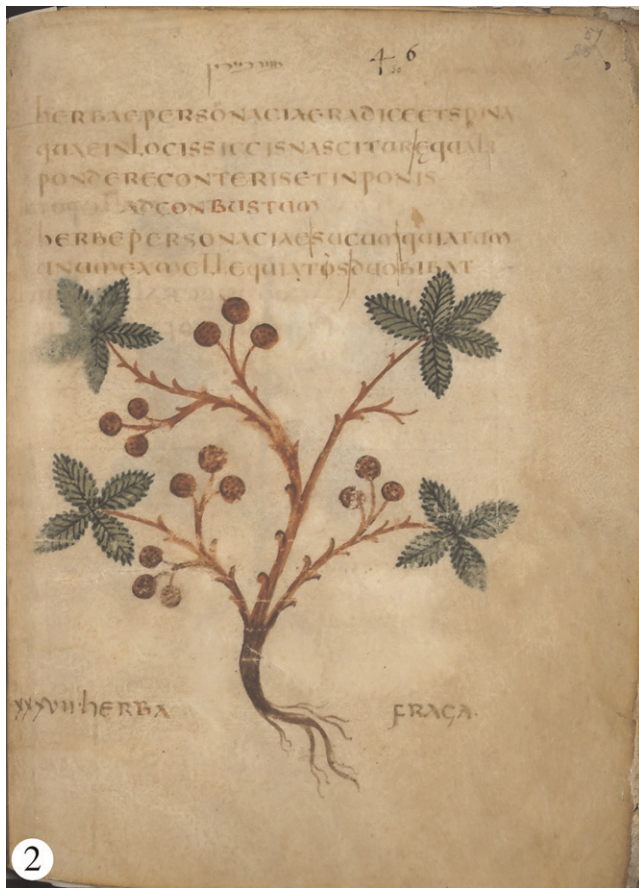 46
HERBAEPERSONACIAERADICEETSPINA
QUAEINLOCISSICCISNASCITUREQUALI
PONDERECONTERISETINPONIS
ADCONBUSTUM
HERBEPERSONACIAESUCUMQUIATUM
UNUMEXMELLEQUIATOSDUOBIBAT
XXXVII·HERBA FRAGA·
2